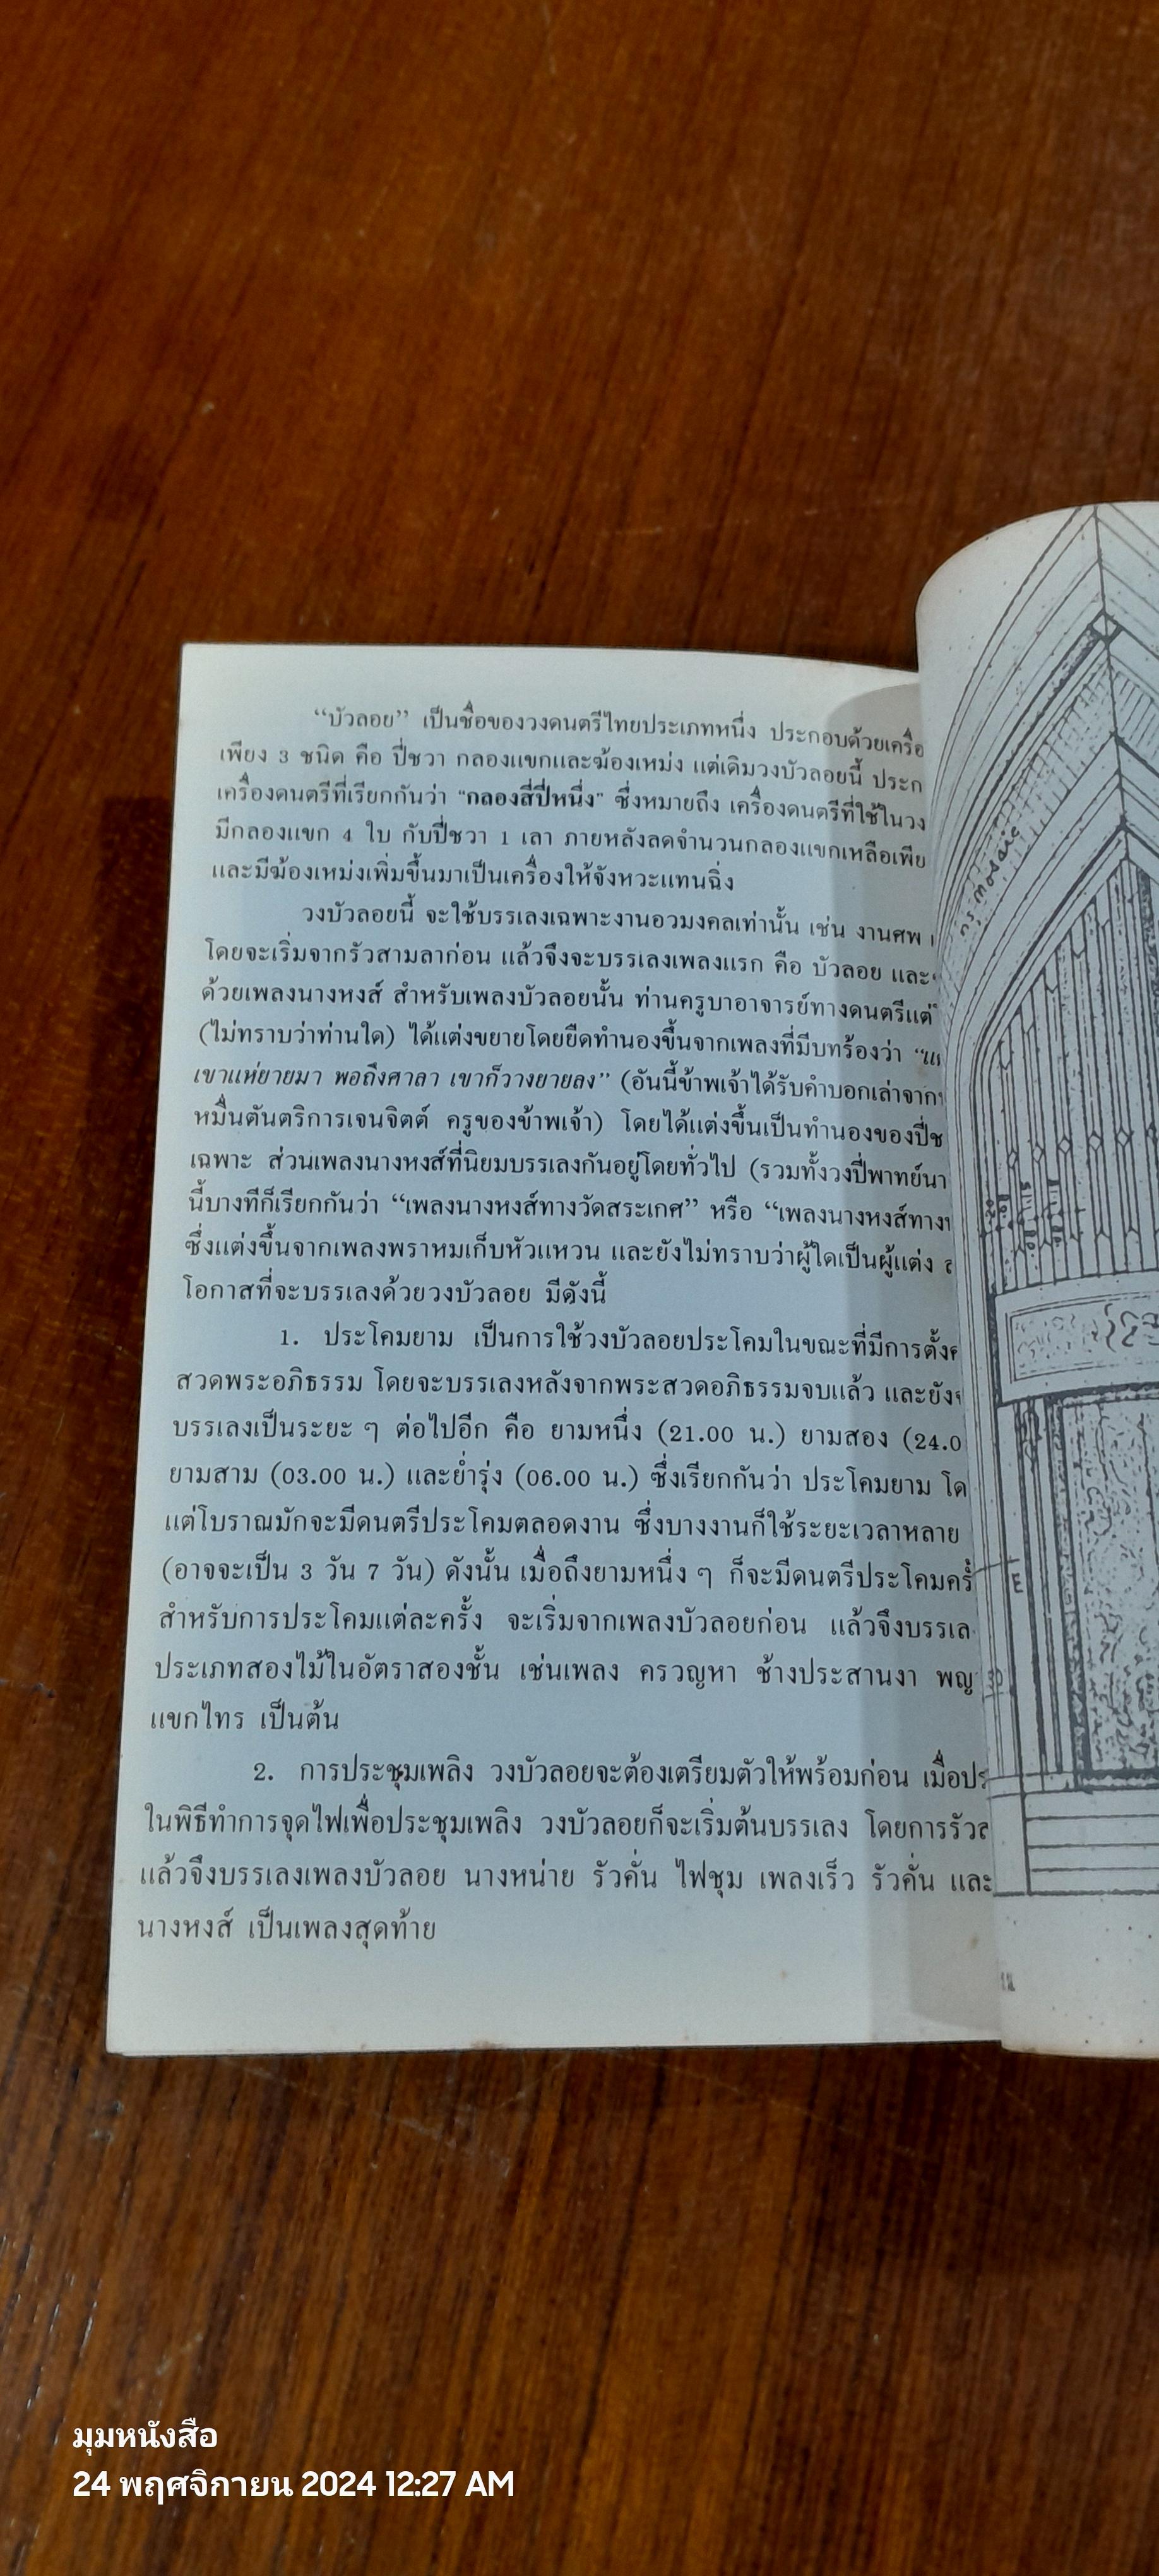 “บัวลอย” เป็นชื่อของวงดนตรีไทยประเภทหนึ่ง ประกอบด้วยเครื่อ
เพียง 3 ชนิด คือ ปี่ชวา กลองแขกและฆ้องเหม่ง แต่เดิมวงบัวลอยนี้ ประก
เครื่องดนตรีที่เรียกกันว่า “กลองสี่ปี่หนึ่ง” ซึ่งหมายถึง เครื่องดนตรีที่ใช้ในวง
มีกลองแขก 4 ใบ กับปี่ชวา 1 เลา ภายหลังลดจำนวนกลองแขกเหลือเพีย
และมีฆ้องเหม่งเพิ่มขึ้นมาเป็นเครื่องให้จังหวะแทนฉิ่ง
วงบัวลอยนี้ จะใช้บรรเลงเฉพาะงานอวมงคลเท่านั้น เช่น งานศพ
โดยจะเริ่มจากรัวสามลาก่อน แล้วจึงจะบรรเลงเพลงแรก คือ บัวลอย และ
ด้วยเพลงนางหงส์ สำหรับเพลงบัวลอยนั้น ท่านครูบาอาจารย์ทางดนตรีแต่
(ไม่ทราบว่าท่านใด) ได้แต่งขยายโดยยืดทำนองขึ้นจากเพลงที่มีบทร้องว่า
เขาแห่ยายมา พอถึงศาลา เขาก็วางยายลง” (อันนี้ข้าพเจ้าได้รับคำบอกเล่าจาก
หมื่นตันตริการเจนจิตต์ ครูของข้าพเจ้า) โดยได้แต่งขึ้นเป็นทำนองของปี่ช
เฉพาะ ส่วนเพลงนางหงส์ที่นิยมบรรเลงกันอยู่โดยทั่วไป (รวมทั้งวงปี่พาทย์นา
นี้บางทีก็เรียกกันว่า “เพลงนางหงส์ทางวัดสระเกศ” หรือ “เพลงนางหงส์ทาง
ซึ่งแต่งขึ้นจากเพลงพราหมเก็บหัวแหวน และยังไม่ทราบว่าผู้ใดเป็นผู้แต่ง
โอกาสที่จะบรรเลงด้วยวงบัวลอย มีดังนี้
1. ประโคมยาม เป็นการใช้วงบัวลอยประโคมในขณะที่มีการตั้ง
สวดพระอภิธรรม โดยจะบรรเลงหลังจากพระสวดอภิธรรมจบแล้ว และยัง
บรรเลงเป็นระยะ ๆ ต่อไปอีก คือ ยามหนึ่ง (21.00 น.) ยามสอง (24.0
ยามสาม (03.00 น.) และย่ำรุ่ง (06.00 น.) ซึ่งเรียกกันว่า ประโคมยาม โด
แต่โบราณมักจะมีดนตรีประโคมตลอดงาน ซึ่งบางงานก็ใช้ระยะเวลาหลาย
(อาจจะเป็น 3 วัน 7 วัน) ดังนั้น เมื่อถึงยามหนึ่ง ๆ ก็จะมีดนตรีประโคมครั้
สำหรับการประโคมแต่ละครั้ง จะเริ่มจากเพลงบัวลอยก่อน แล้วจึงบรรเล
ประเภทสองไม้ในอัตราสองชั้น เช่นเพลง ครวญหา ช้างประสานงา พญ
แขกไทร เป็นต้น
2. การประชุมเพลิง วงบัวลอยจะต้องเตรียมตัวให้พร้อมก่อน เมื่อปร
ในพิธีทำการจุดไฟเพื่อประชุมเพลิง วงบัวลอยก็จะเริ่มต้นบรรเลง โดยการรัวส
แล้วจึงบรรเลงเพลงบัวลอย นางหน่าย รัวคั่น ไฟชุม เพลงเร็ว รัวคั่น และ
นางหงส์ เป็นเพลงสุดท้าย
mosaic
E
มุมหนังสือ
24 พฤศจิกายน 2024 12:27 AM